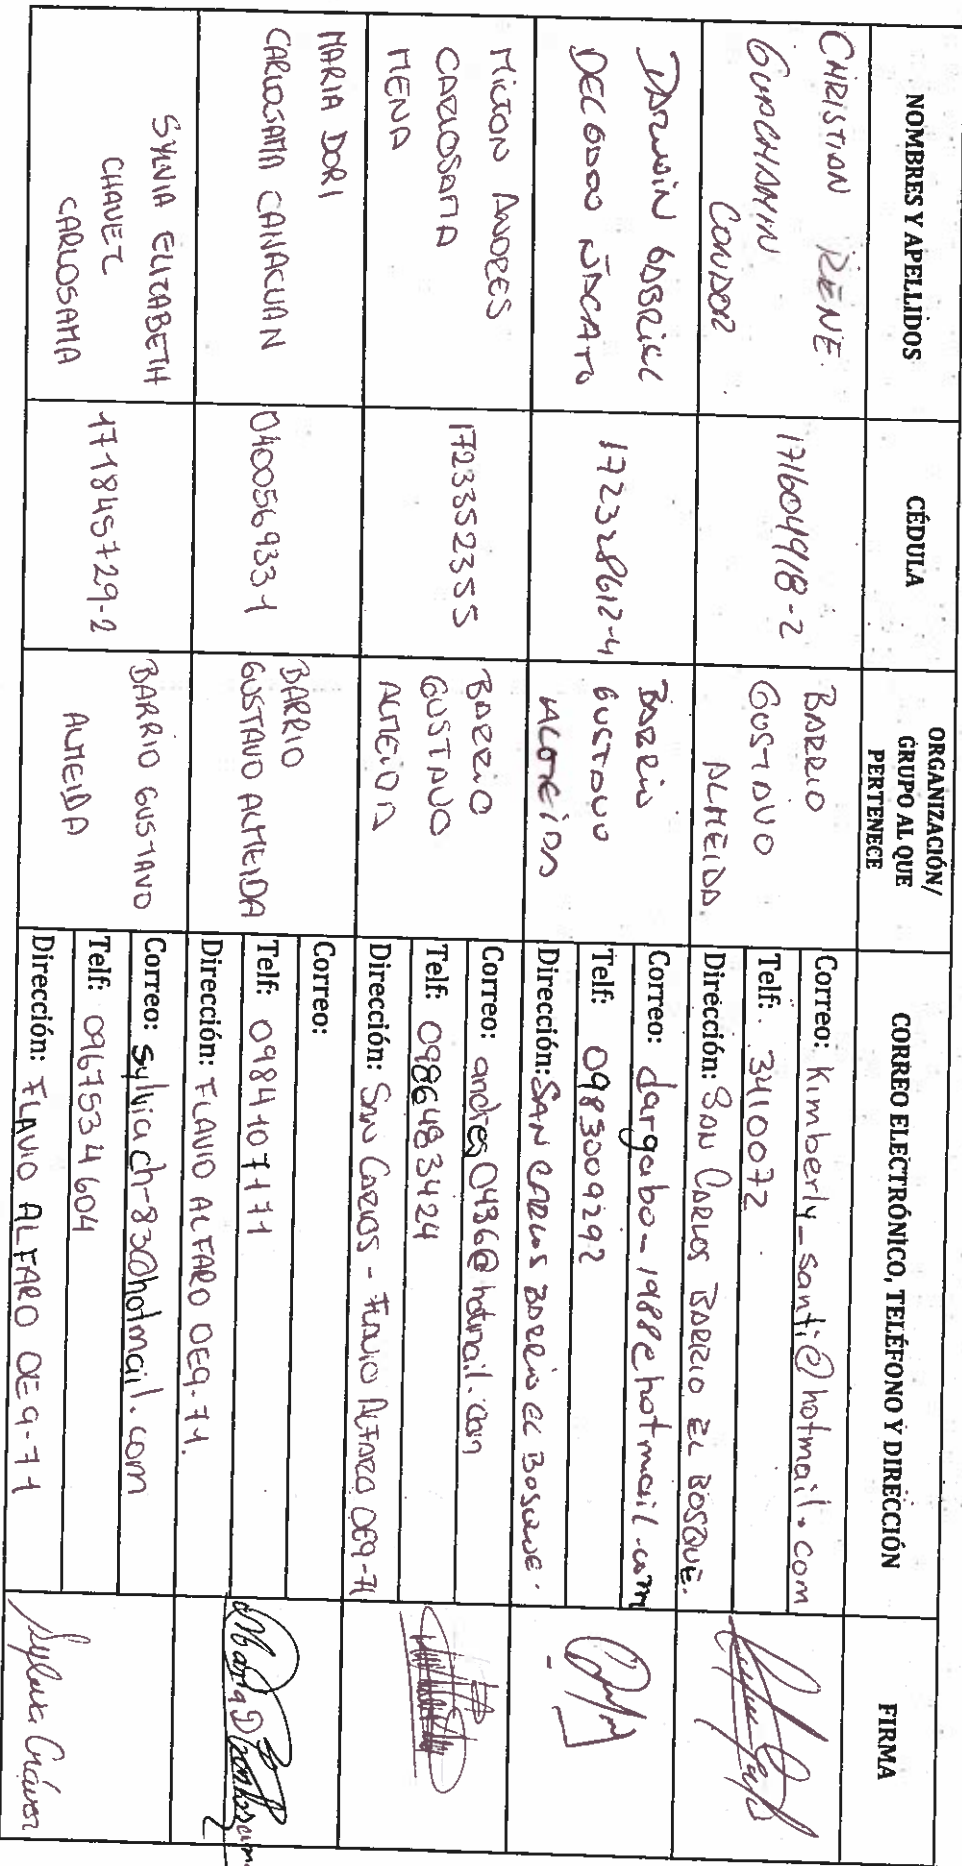 NOMBRES Y APELLIDOS
CÉDULA
ORGANIZACIÓN/
GRUPO AL QUE
PERTENECE
CORREO ELECTRÓNICO, TELÉFONO Y DIRECCIÓN
FIRMA
CHRISTIAN RENE.
GUACHAMIN
CONDOR
171604918-2
BARRIO
GUSTAVO
ALMEIDA
Correo: Kimberly_santi@hotmail.com
Telf: 3410072
Dirección: SAN CARLOS BARRIO EL BOSQUE.
DARWIN GABRIEL
DELGADO ÑACATO
172328612-4
BARRIO
GUSTAVO
ALMEIDA
Correo: dargabo-1988@hotmail.com
Telf: 0983009292
Dirección: SAN CARLOS BARRIO EL BOSQUE.
MILTON ANDRES
CARLOSAMA
MENA
1723352355
BARRIO
GUSTAVO
ALMEIDA
Correo: andres0436@hotmail.com
Telf: 0986483424
Dirección: SAN CARLOS - FLAVIO ALFARO OE9-71
MARIA DORI
CARLOSAMA CANACUAN
040056933-1
BARRIO
GUSTAVO ALMEIDA
Correo:
Telf: 0984107171
Dirección: FLAVIO ALFARO OE9-71.
SYLVIA ELIZABETH
CHAVEZ
CARLOSAMA
171845729-2
BARRIO GUSTAVO
ALMEIDA
Correo: sylvia ch-83@hotmail.com
Telf: 0967534604
Dirección: FLAVIO ALFARO OE9-71
Sylvia Chávez